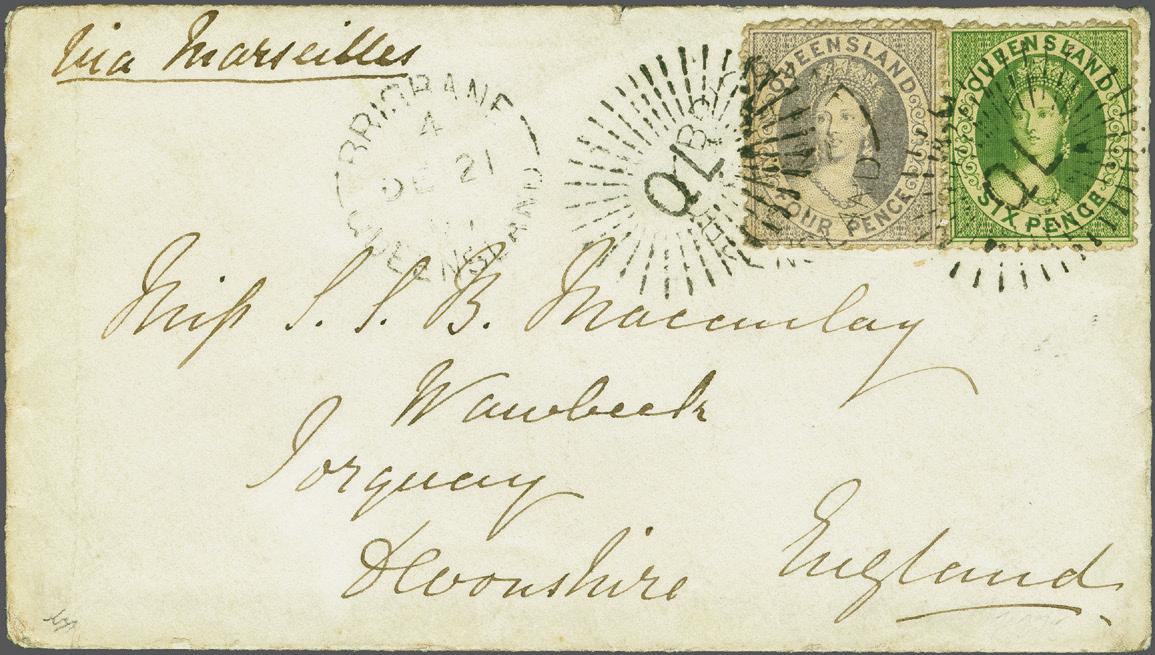 Via Marseilles
BRISBANE
4
DE 21
QUEENSLAND
QL
QUEENSLAND
FOUR PENCE
QL
QUEENSLAND
SIX PENCE
Miss S. S. B. Macaulay
Torquay
Devonshire
England